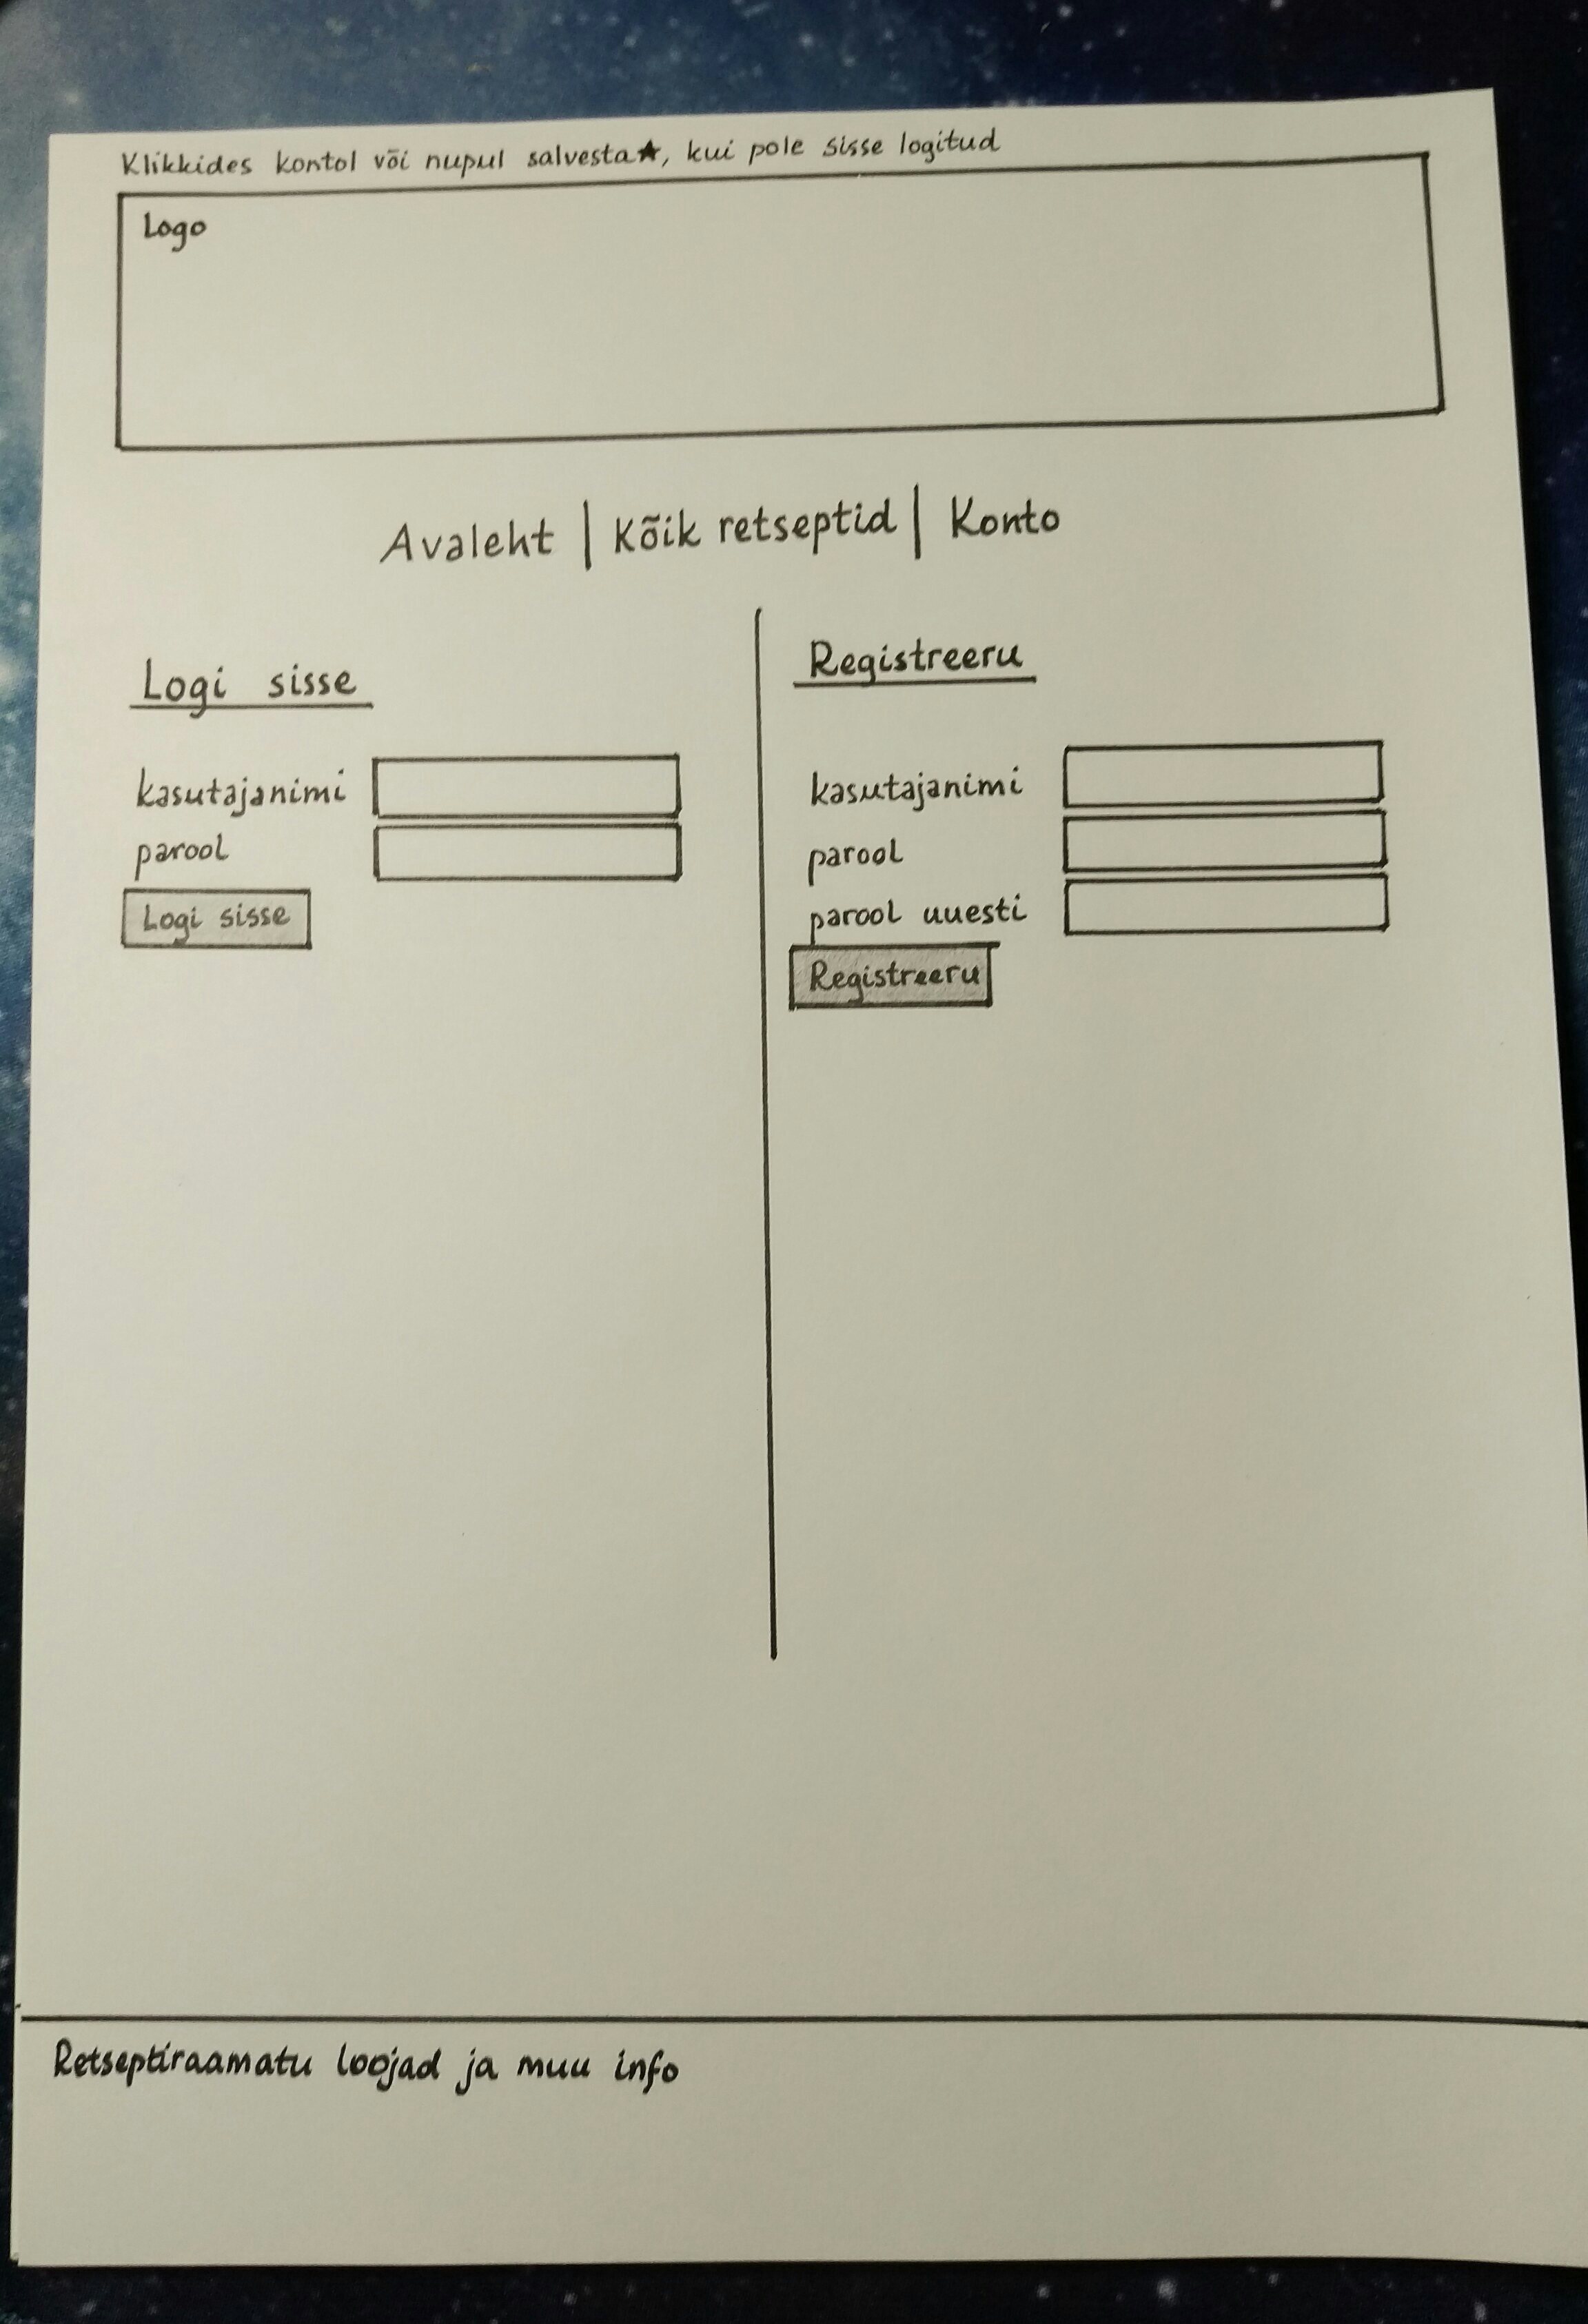 Klikkides kontol või nupul salvesta★, kui pole sisse logitud
Logo
Avaleht | Kõik retseptid | Konto
Logi sisse
kasutajanimi
parool
Logi sisse
Registreeru
kasutajanimi
parool
parool uuesti
Registreeru
Retseptiraamatu loojad ja muu info